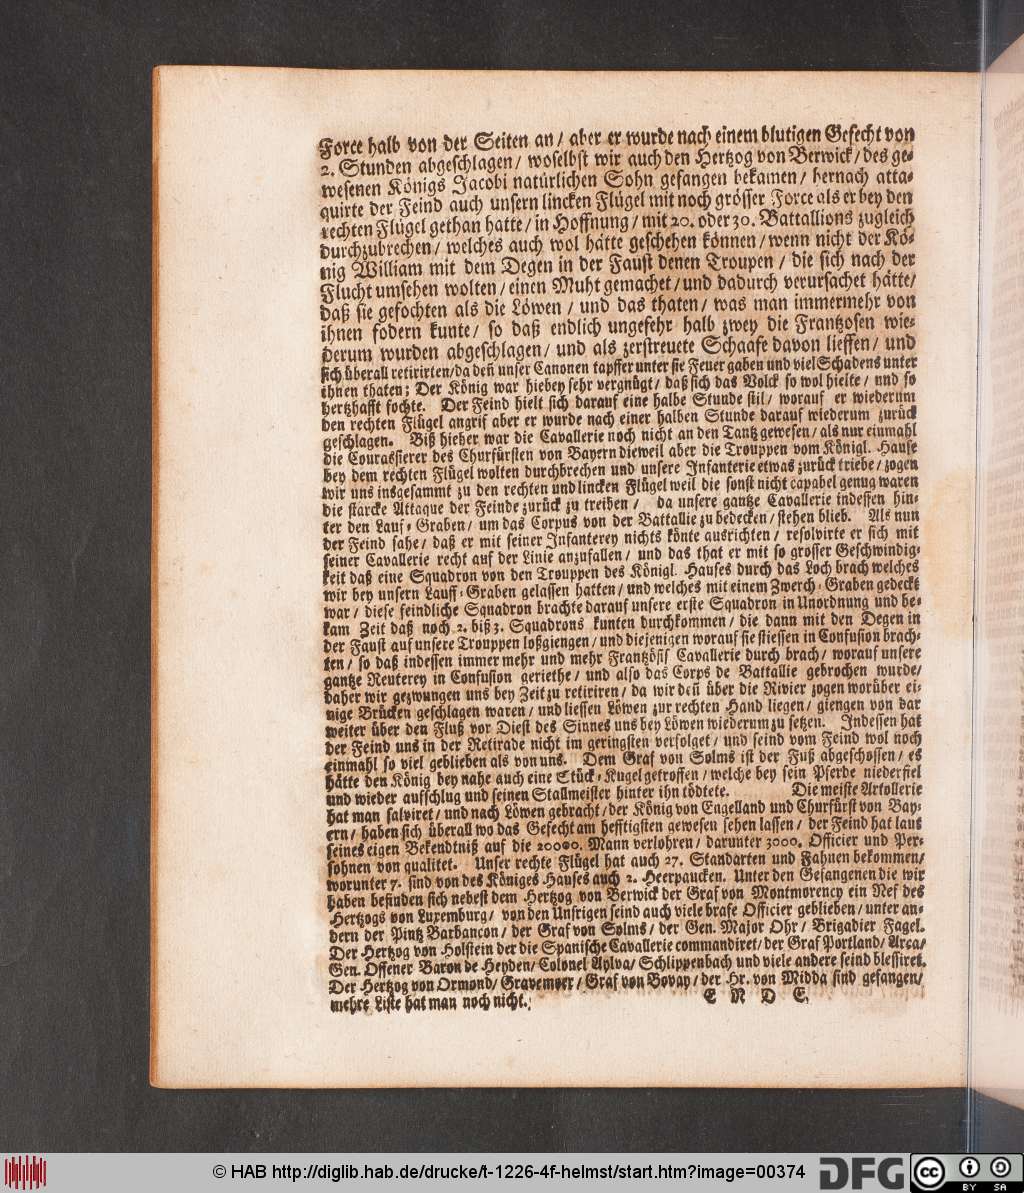 Force halb von der Seiten an/ aber er wurde nach einem blutigen Gefecht von
2. Stunden abgeschlagen/ woselbst wir auch den Hertzog von Berwick/ des ge-
wesenen Königs Jacobi natürlichen Sohn gefangen bekamen/ hernach atta-
quirte der Feind auch unsern lincken Flügel mit noch grösser Force als er bey den
rechten Flügel gethan hatte/ in Hoffnung/ mit 20. oder 30. Battallions zugleich
durchzubrechen/ welches auch wol hätte geschehen können/ wenn nicht der Kö-
nig William mit dem Degen in der Faust denen Troupen/ die sich nach der
Flucht umsehen wolten/ einen Muht gemachet/ und dadurch verursachet hätte/
daß sie gefochten als die Löwen/ und das thaten/ was man immermehr von
ihnen fodern kunte/ so daß endlich ungefehr halb zwey die Frantzosen wie-
derum wurden abgeschlagen/ und als zerstreuete Schaafe davon lieffen/ und
sich überall retirirten/ da deñ unser Canonen tapffer unter sie Feuer gaben und viel Schadens unter
ihnen thaten; Der König war hiebey sehr vergnügt/ daß sich das Volck so wol hielte/ und so
hertzhafft fochte. Der Feind hielt sich darauf eine halbe Stunde stil/ worauf er wiederum
den rechten Flügel angrif aber er wurde nach einer halben Stunde darauf wiederum zurück
geschlagen. Biß hieher war die Cavallerie noch nicht an den Tantz gewesen/ als nur einmahl
die Courassierer des Churfürsten von Bayern dieweil aber die Trouppen vom Königl. Hause
bey dem rechten Flügel wolten durchbrechen und unsere Infanterie etwas zurück triebe/ zogen
wir uns insgesammt zu den rechten und lincken Flügel weil die sonst nicht capabel genug waren
die starcke Attaque der Feinde zurück zu treiben/ da unsere gantze Cavallerie indessen hin-
ter den Lauf-Graben/ um das Corpus von der Battallie zu bedecken/ stehen blieb. Als nun
der Feind sahe/ daß er mit seiner Infanterey nichts könte ausrichten/ resolvirte er sich mit
seiner Cavallerie recht auf der Linie anzufallen/ und das that er mit so grosser Geschwindig-
keit daß eine Squadron von den Trouppen des Königl. Hauses durch das Loch brach welches
wir bey unsern Lauff-Graben gelassen hatten/ und welches mit einem Zwerch-Graben gedeckt
war/ diese feindliche Squadron brachte darauf unsere erste Squadron in Unordnung und be-
kam Zeit daß noch 2. biß 3. Squadrons kunten durchkommen/ die dann mit den Degen in
der Faust auf unsere Trouppen loßgiengen/ und diejenigen worauf sie stiessen in Confusion brach-
ten/ so daß indessen immer mehr und mehr Frantzösis Cavallerie durch brach/ worauf unsere
gantze Reuterey in Confusion geriethe/ und also das Corps de Battallie gebrochen wurde/
daher wir gezwungen uns bey Zeit zu retiriren/ da wir deñ über die Rivier zogen worüber ei-
nige Brücken geschlagen waren/ und liessen Löwen zur rechten Hand liegen/ giengen von dar
weiter über den Fluß vor Diest des Sinnes uns bey Löwen wiederum zu setzen. Indessen hat
der Feind uns in der Retirade nicht im geringsten verfolget/ und seind vom Feind wol noch
einmahl so viel geblieben als von uns. Dem Graf von Solms ist der Fuß abgeschossen/ es
hätte den König bey nahe auch eine Stück-Kugel getroffen/ welche bey sein Pferde niederfiel
und wieder aufschlug und seinen Stallmeister hinter ihn tödtete. Die meiste Artollerie
hat man salviret/ und nach Löwen gebracht/ der König von Engelland und Churfürst von Bay-
ern/ haben sich überall wo das Gefecht am hefftigsten gewesen sehen lassen/ der Feind hat laut
seines eigen Bekendtniß auf die 20000. Mann verlohren/ darunter 3000. Officier und Per-
sohnen von qualitet. Unser rechte Flügel hat auch 27. Standarten und Fahnen bekommen/
worunter 7. sind von des Königes Hauses auch 2. Heerpaucken. Unter den Gefangenen die wir
haben befinden sich nebest dem Hertzog von Berwick der Graf von Montmorency ein Nef des
Hertzogs von Luxemburg/ von den Unsrigen seind auch viele brafe Officier geblieben/ unter an-
dern der Pintz Barbancon/ der Graf von Solms/ der Gen. Major Ohr/ Brigadier Fagel.
Der Hertzog von Holstein der die Spanische Cavallerie commandiret/ der Graf Portland/ Arca/
Gen. Offener Baron de Heyden/ Colonel Aylva/ Schlippenbach und viele andere seind blessiret.
Der Hertzog von Ormond/ Gravemoer/ Graf von Bovay/ der Hr. von Midda sind gefangen/
mehre Liste hat man noch nicht. E N D E.
© HAB http://diglib.hab.de/drucke/t-1226-4f-helmst/start.htm?image=00374
DFG
cc BY SA